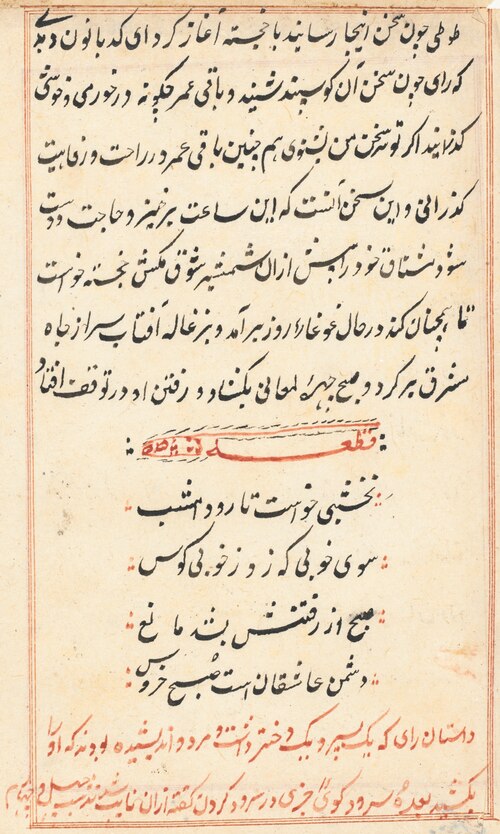 طوطی چون سخن اینجا رسانید با خجسته آغاز کرد ای کدبانو
که رای چون سخن آن گوسپند شنید و باقی عمر چگونه در خوری و خوشی
کذرانید اکر تو نیز سخن من بشنوی هم چنین باقی عمر در راحت و رفاهیت
کذرانی و این سخن آنست که این ساعت برخیز و حاجت دوست
خود را پیش ازان شمشیر شوق مکش خجسته خواست
تا همچنان کند در حال غوغاء روز برآمد و بزغاله آفتاب سر از چاه
مشرق بر کرد و صبح چهرهٔ لمعانی بکشاد و رفتن او در توقف افتاد
قطعه
نخشبی خواست تا رود امشب
سوی خوبی که زو ز خوبی کوس
صبح از رفتنش بشد مانع
دشمن عاشقان است صبح خروس
داستان رای که یک پسر و یک دختر داشت و مردو اندیشیده بودند که او را
بکشید بعده سرود کوی در سرود کردن کفته ازان